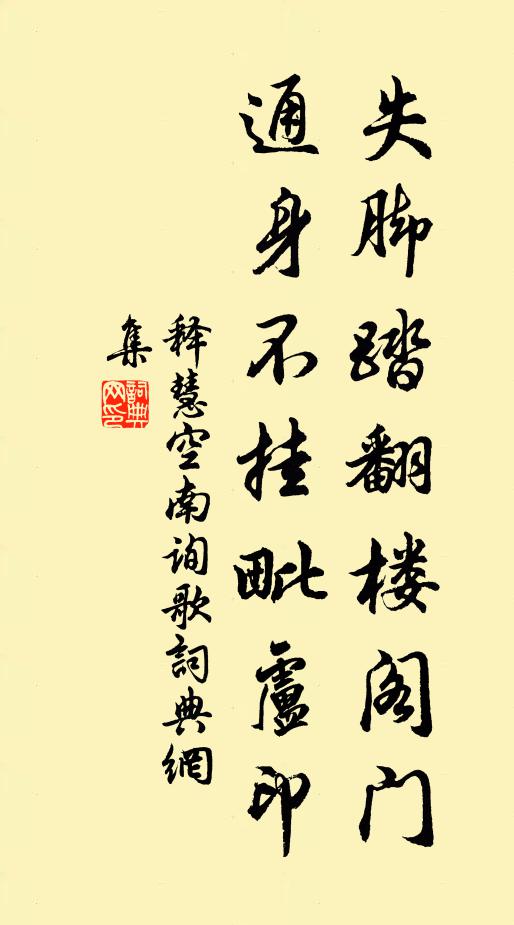 失脚踏翻楼阁门
通身不挂毗盧印
释慧空南询歌詞典網
集
詞典網印